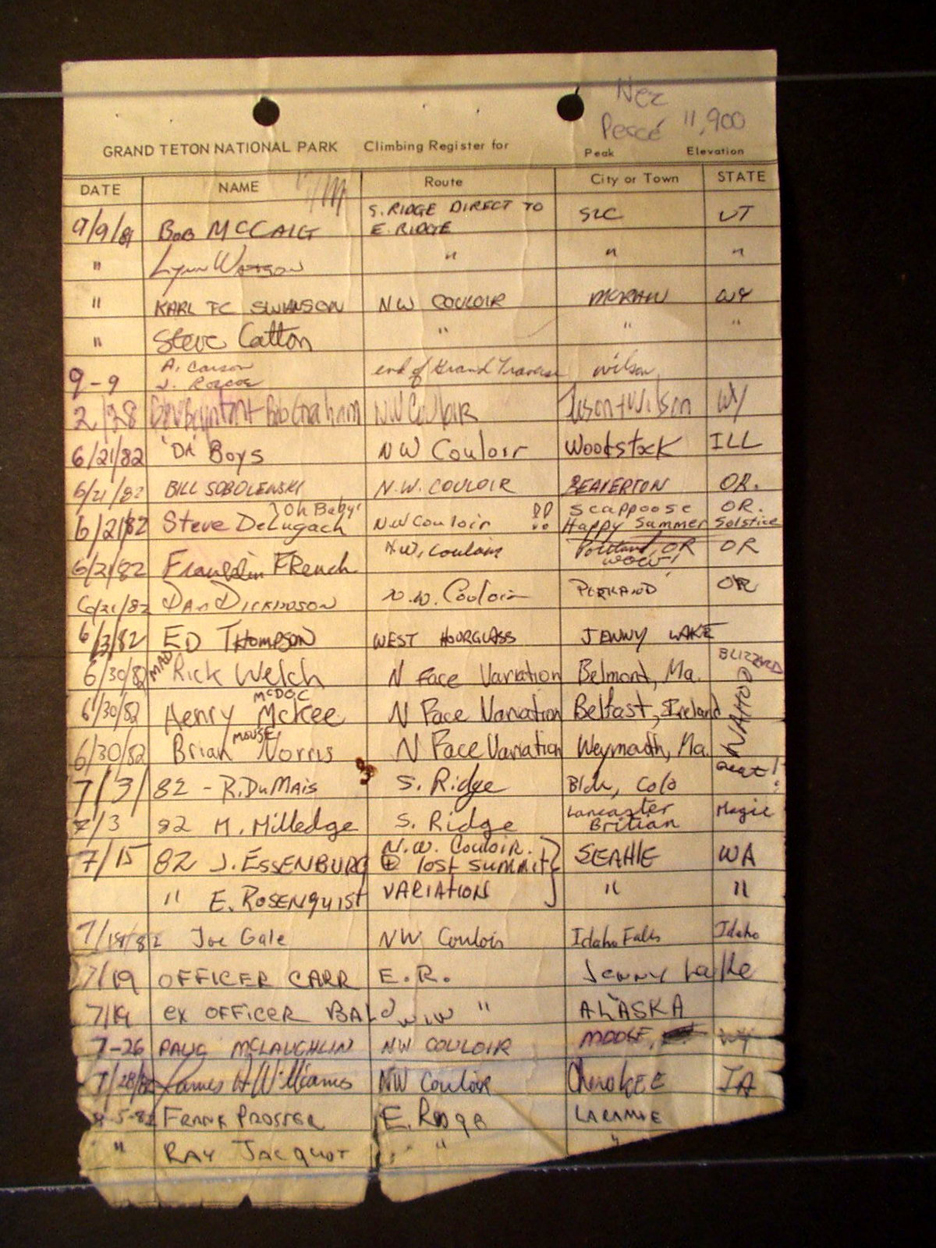 Nez
Percé 11,900
GRAND TETON NATIONAL PARK Climbing Register for Peak Elevation
DATE NAME Route City or Town STATE
9/9/81 BOB MCCAIG S. RIDGE DIRECT TO E. RIDGE SLC UT
" Lynn Watson " " "
" KARL FC SWANSON NW COULOIR MORAN WY
" Steve Catton " " "
9-9 A. Carson J. Roscoe end of Grand Traverse Wilson
2/28 Bob Graham NW Couloir Wilson WY
6/21/82 'DA' Boys NW Couloir Woodstock ILL
6/21/82 BILL SOBOLENSKI N.W. COULOIR BEAVERTON OR.
6/21/82 Steve DeLugach Oh Baby! NW Couloir !! Scappoose OR.
Happy Summer Solstice
6/21/82 Franklin French N.W. Couloir Portland, OR OR
wow!
6/21/82 DAN DICKINSON N.W. Couloir PORTLAND OR
6/3/82 ED THOMPSON WEST HOURGLASS JENNY LAKE
6/30/82 MAD Rick Welch N Face Variation Belmont, Ma. BLIZZARD
6/30/82 Henry McDOC McKee N Face Variation Belfast, Ireland
6/30/82 Brian MOUSE Norris N Face Variation Weymouth, Ma.
7/3/82 - R. DuMais S. Ridge Bldr, Colo Great!
7/3 82 M. Milledge S. Ridge Lancaster Britian Magic
7/15 82 J. ESSENBURG N.W. COULOIR. SEATTLE WA
⊕ LOST SUMMIT
" E. ROSENQUIST VARIATION " "
7/18/82 Joe Gale NW Couloir Idaho Falls Idaho
7/19 OFFICER CARR E.R. Jenny Lake
7/19 ex OFFICER BALD " ALASKA
7-26 MCLAUGHLIN NW COULOIR MOOSE, WY
7/28/82 James H Williams NW Couloir Cherokee IA
8-5-82 FRANK PROSSER E. Ridge LARAMIE
" RAY JACQUOT " "